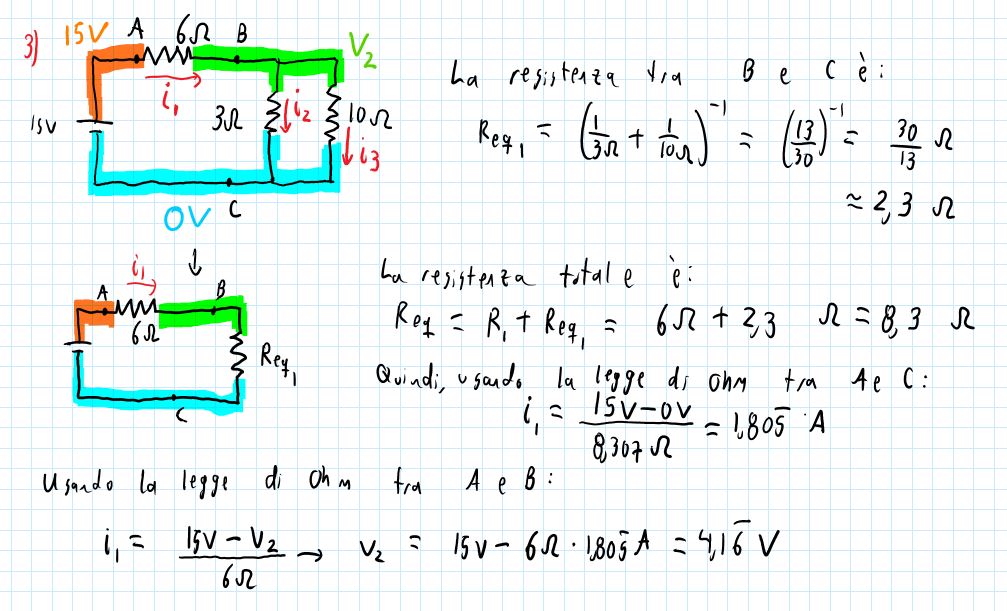 3) 15V A 6Ω B V₂
i₁
15V 3Ω i₂ 10Ω
i₃
C
0V
La resistenza tra B e C è:
Req₁ = (1/3Ω + 1/10Ω)⁻¹ = (13/30)⁻¹ = 30/13 Ω
≈ 2,3 Ω
↓
i₁
A B
6Ω
Req₁
C
La resistenza totale è:
Req = R₁ + Req₁ = 6Ω + 2,3 Ω = 8,3 Ω
Quindi, usando la legge di Ohm tra A e C:
i₁ = 15V-0V / 8,307 Ω = 1,805̅ A
Usando la legge di Ohm tra A e B:
i₁ = 15V - V₂ / 6Ω → V₂ = 15V - 6Ω · 1,805̅ A = 4,16̅ V